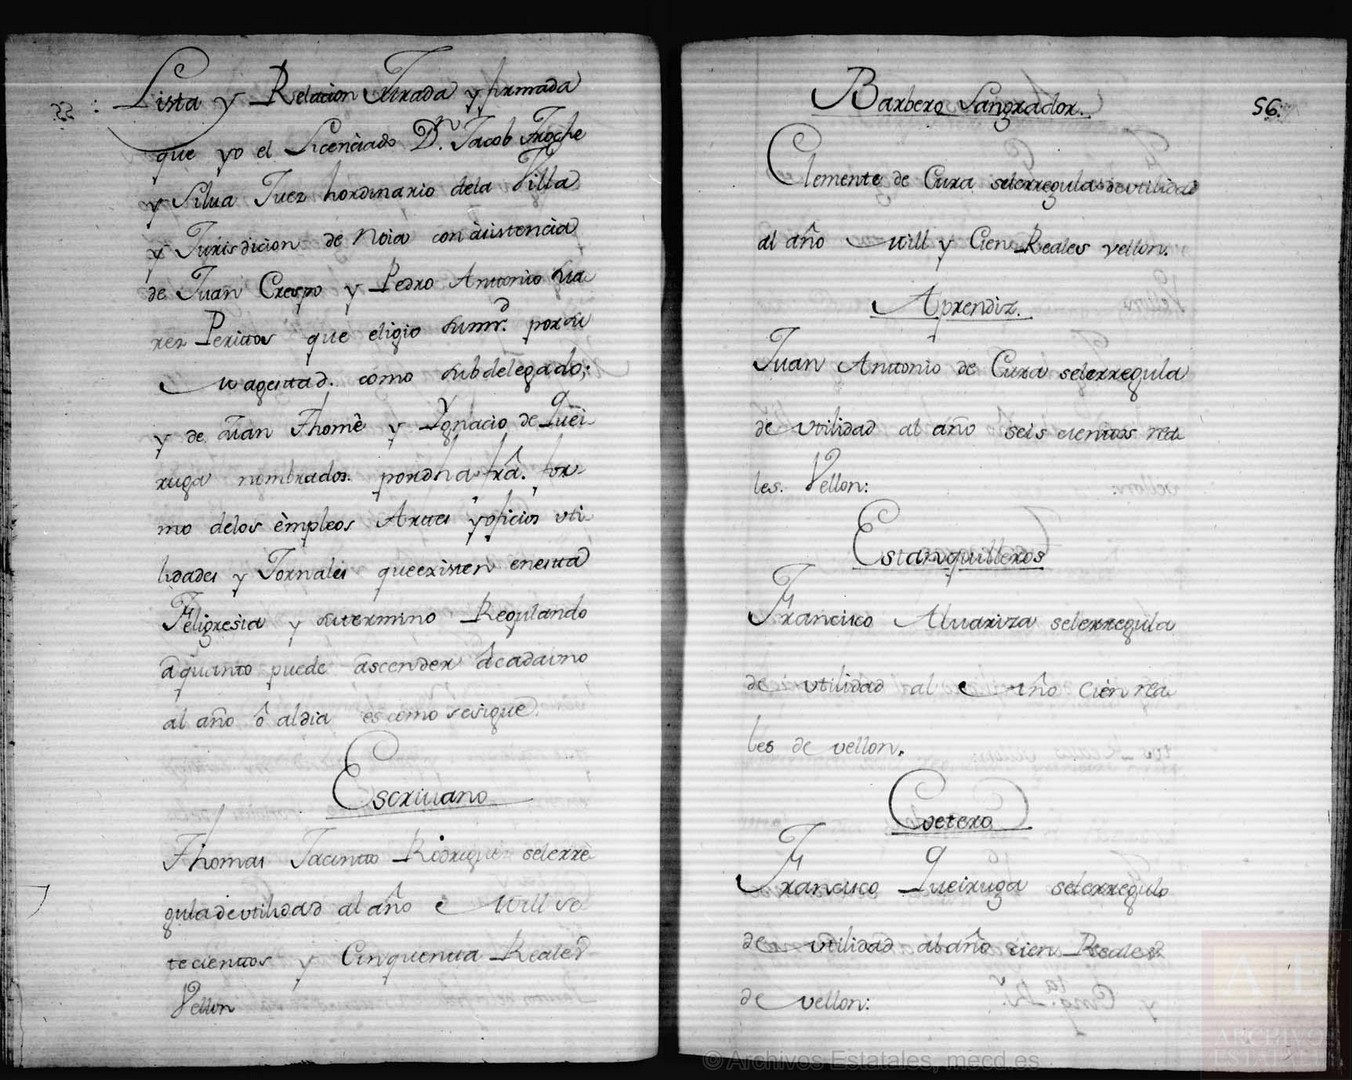 Lista y Relacion Jurada y firmada
que yo el Licenciado D.n Jacob Troche
y Silua Juez hordinario dela Villa
y Jurisdicion de Noia con asistencia
de Juan Crespo y Pedro Antonio Sua
rez Peritos que eligio sumr.d porsu
Magestad. como subdelegado;
y de Juan Thomè y Ygnacio de Quei
ruga nombrados. pordha frâ. for
mo delos èmpleos Artes yoficios uti
lidades y Jornales queexisten enesta
Feligresia y sutermino Regulando
aquanto puede ascender âcadauno
al año ô aldia es como sesigue.
Escriuano
Thomas Jacinto Rodriguez selerre
gula deutilidad al año Mill se
tecientos y Cinquenta Reales
Vellon
Barbero Sangrador.
56.
Clemente de Cura selerregula deutilidad
al año Mill y Cien Reales vellon.
Aprendiz.
Juan Antonio de Cura selerregula
de utilidad al año seis cientos rea
les. Vellon:
Estanquilleros
Francisco Aluariza selerregula
de utilidad al año cien rea
les de vellon.
Coetero
Francisco Queiruga selerregula
de utilidad al año cien Reales
de vellon:
© Archivos Estatales, mecd.es
AE
ARCHIVOS
ESTATALES